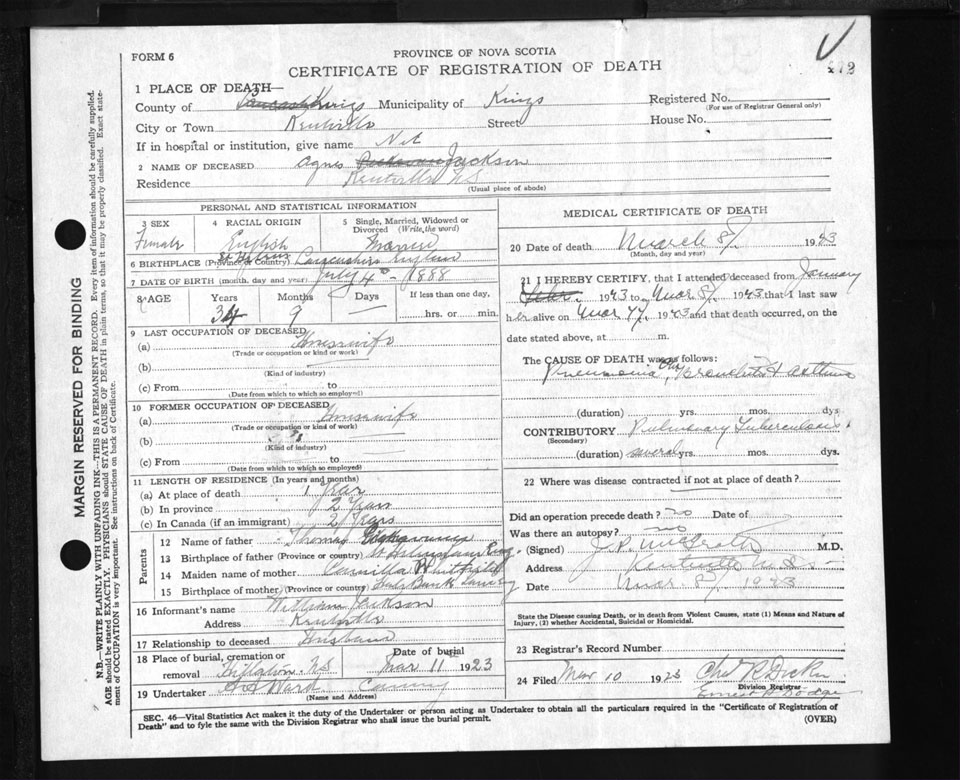 FORM 6
PROVINCE OF NOVA SCOTIA
CERTIFICATE OF REGISTRATION OF DEATH
1 PLACE OF DEATH—
County of Kings Municipality of Kings Registered No.
(For use of Registrar General only)
City or Town Kentville Street House No.
If in hospital or institution, give name
2 NAME OF DECEASED Agnes Jackson
Residence Kentville N.S.
(Usual place of abode)
PERSONAL AND STATISTICAL INFORMATION
3 SEX 4 RACIAL ORIGIN 5 Single, Married, Widowed or Divorced (Write the word)
Female English Married
6 BIRTHPLACE (Province or Country) Lancashire England
7 DATE OF BIRTH (month, day and year) July 4 - 1888
8 AGE Years Months Days If less than one day,
34 9 — hrs. or min.
9 LAST OCCUPATION OF DECEASED
(a) Housewife
(Trade or occupation or kind or work)
(b)
(Kind of industry)
(c) From to
(Date from which to which so employed)
10 FORMER OCCUPATION OF DECEASED
(a) Housewife
(Trade or occupation or kind of work)
(b)
(Kind of industry)
(c) From to
(Date from which to which so employed)
11 LENGTH OF RESIDENCE (In years and months)
(a) At place of death 1 Year
(b) In province 2 Years
(c) In Canada (if an immigrant) 2 Years
Parents
12 Name of father Thomas
13 Birthplace of father (Province or country)
14 Maiden name of mother Camilla Whitfield
15 Birthplace of mother (Province or country)
16 Informant's name William Jackson
Address Kentville
17 Relationship to deceased Husband
18 Place of burial, cremation or removal Date of burial
N.S. Mar 11 1923
19 Undertaker Ward Canning
(Name and Address)
MEDICAL CERTIFICATE OF DEATH
20 Date of death March 8, 1923
(Month, day and year)
21 I HEREBY CERTIFY, that I attended deceased from January
1923 to Mar 8, 1923 that I last saw
her alive on Mar 7, 1923 and that death occurred, on the
date stated above, at m.
The CAUSE OF DEATH was as follows:
Pneumonia, Bronchitis & asthma
(duration) yrs. mos. dys
CONTRIBUTORY Pulmonary Tuberculosis
(Secondary)
(duration) several yrs. mos. dys.
22 Where was disease contracted if not at place of death?
Did an operation precede death? no Date of
Was there an autopsy? no
(Signed) M.D.
Address Kentville N.S.
Date Mar 8, 1923
State the Disease causing Death, or in death from Violent Causes, state (1) Means and Nature of
Injury, (2) whether Accidental, Suicidal or Homicidal.
23 Registrar's Record Number
24 Filed Mar 10 1923 Chas R Dick
Division Registrar
SEC. 46—Vital Statistics Act makes it the duty of the Undertaker or person acting as Undertaker to obtain all the particulars required in the "Certificate of Registration of
Death" and to fyle the same with the Division Registrar who shall issue the burial permit.
(OVER)
MARGIN RESERVED FOR BINDING
N.B.—WRITE PLAINLY WITH UNFADING INK—THIS IS A PERMANENT RECORD. Every item of information should be carefully supplied.
AGE should be stated EXACTLY. PHYSICIANS should STATE CAUSE OF DEATH in plain terms, so that it may be properly classified. Exact state-
ment of OCCUPATION is very important. See instructions on back of Certificate.